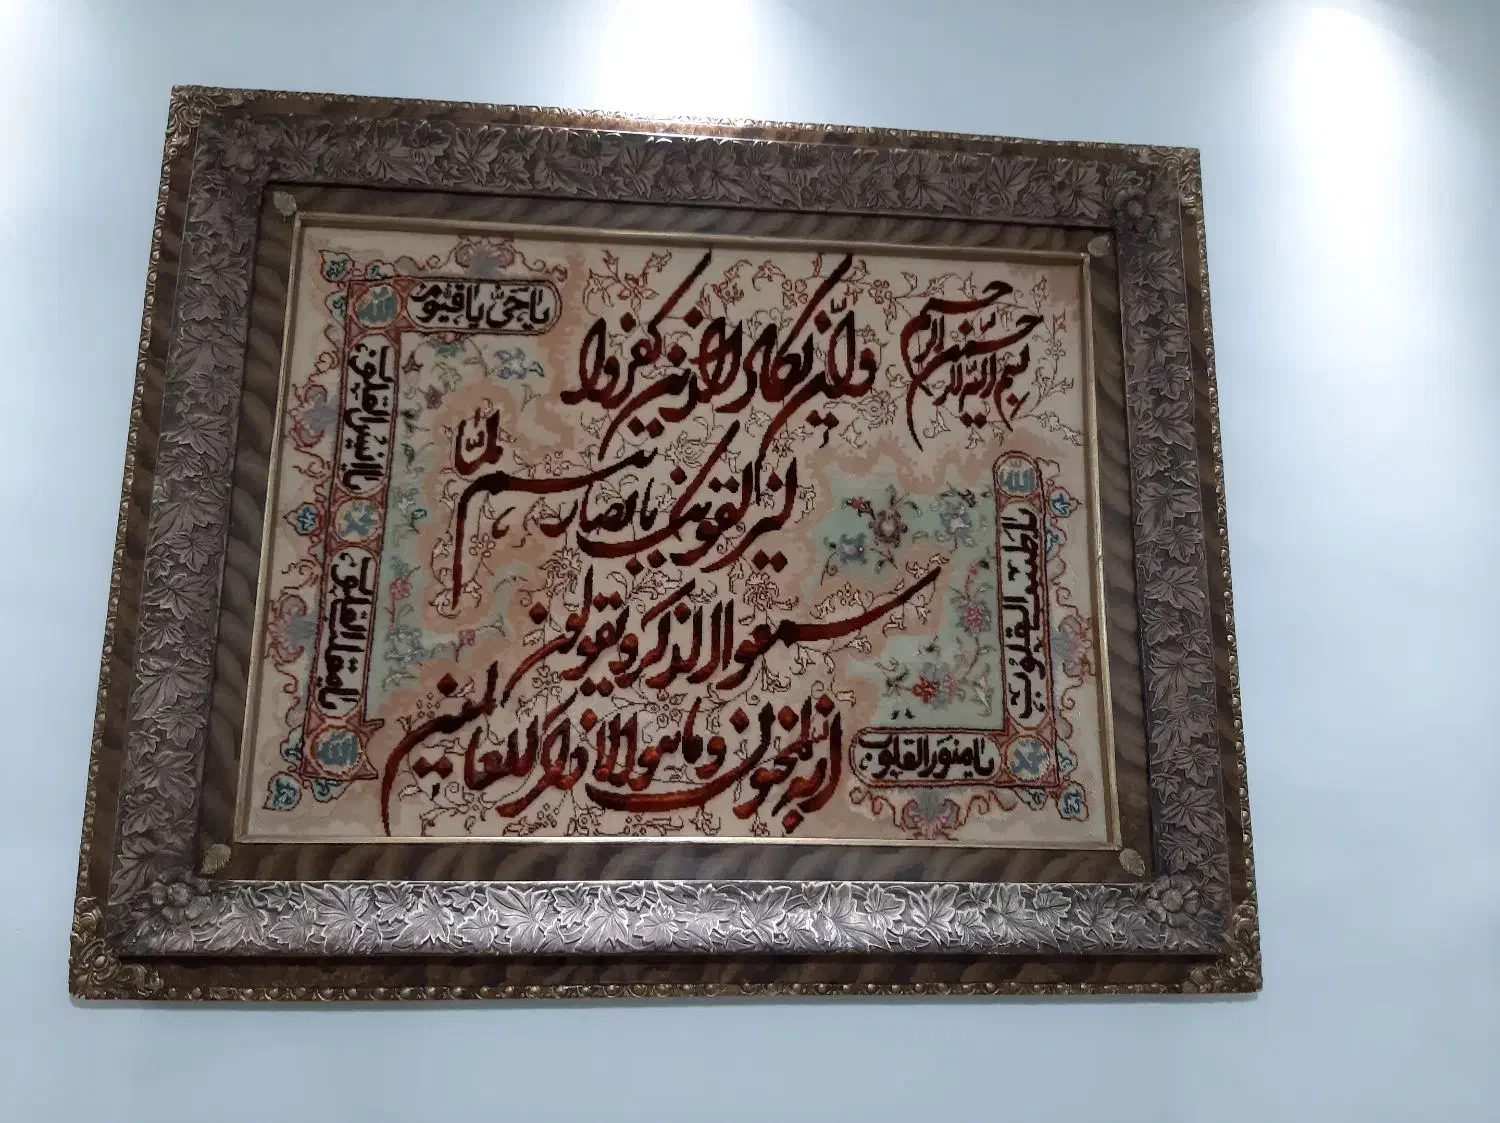 بسم الله الرحمن الرحیم
وان یکاد الذین کفروا
لیزلقونک بابصارهم لما
سمعوا الذکر و یقولون
انه لمجنون وما هو الا ذکر للعالمین
یا حی یا قیوم
الله
یا انیس القلوب
یا مقلب القلوب
الله
الله
یا طبیب القلوب
یا منور القلوب